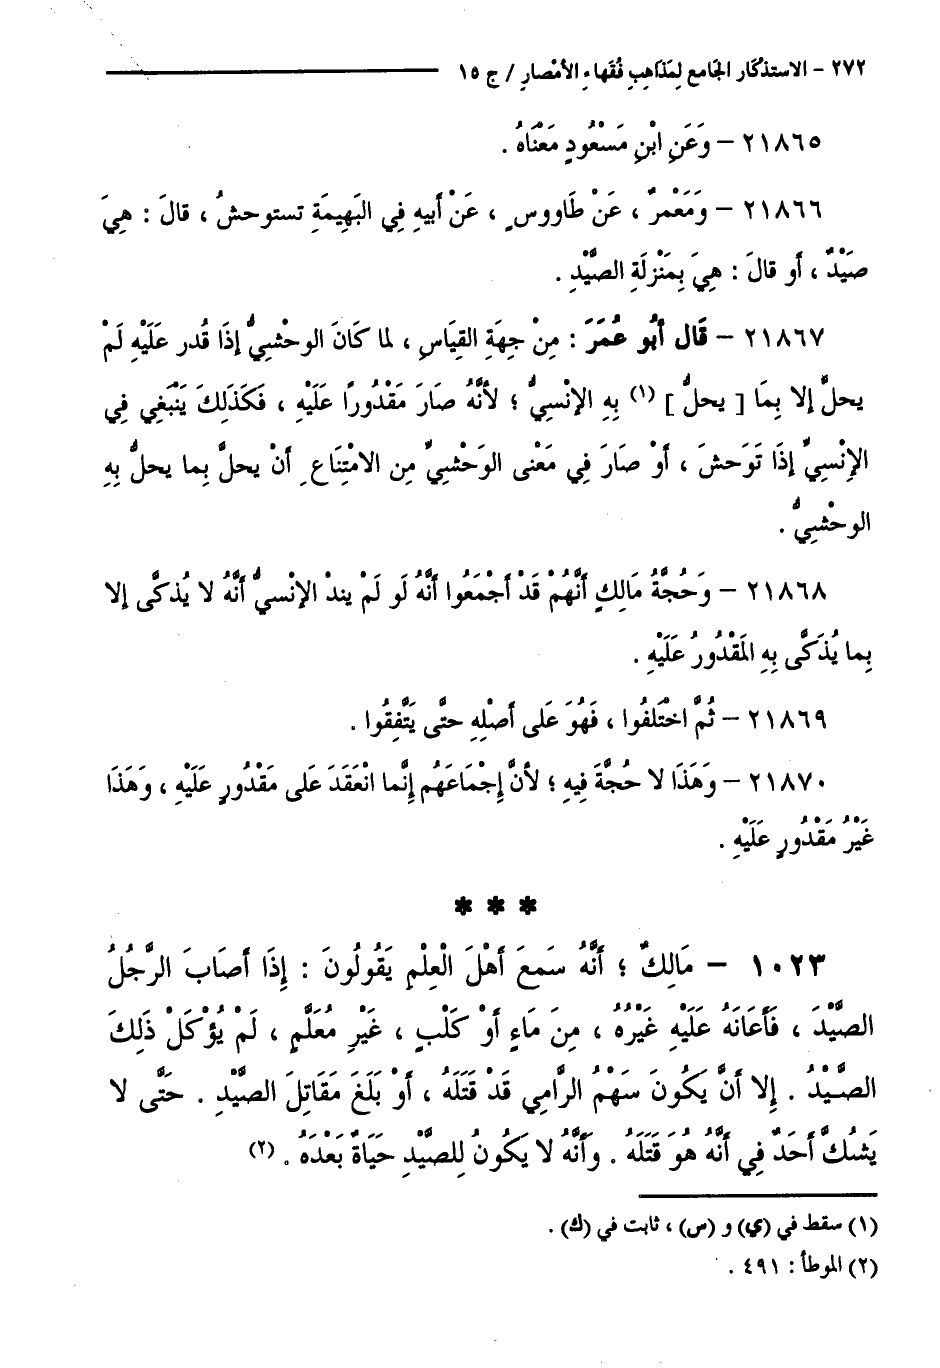 ٢٧٢ - الاستذكار الجامع لِمَذاهِبِ فُقَهاءِ الأمْصارِ / ج ١٥
٢١٨٦٥ - وَعَنِ ابْنِ مَسْعُودٍ مَعْنَاهُ .
٢١٨٦٦ - وَمَعْمرٌ ، عَنْ طَاووسٍ ، عَنْ أبيهِ فِي البَهِيمَةِ تستوحشُ ، قالَ : هِيَ
صَيْدٌ ، أو قالَ : هِيَ بِمَنْزلَةِ الصَّيْدِ .
٢١٨٦٧ - قَال أبُو عُمَرَ : مِنْ جِهَةِ القِيَاسِ ، لما كَانَ الوحْشيُّ إذَا قُدر عَلَيْهِ لَمْ
يحلَّ إلا بِمَا [ يحلُّ ] (١) بِهِ الإنْسيُّ ؛ لأنَّهُ صَارَ مَقْدُوراً عَلَيْهِ ، فَكَذَلِكَ يَنْبَغِي فِي
الإنْسيِّ إذَا تَوَحشَ ، أوْ صَارَ فِي مَعْنى الوَحْشيِّ مِن الامْتِنَاعِ أنْ يحلَّ بِما يحلُّ بِهِ
الوحْشيُّ .
٢١٨٦٨ - وَحُجَّةُ مَالِكٍ أنَّهُمْ قَدْ أجْمَعُوا أنَّهُ لَو لَمْ يندْ الإنْسيُّ أنَّهُ لا يُذكَّى إلا
بِما يُذَكَّى بِهِ المَقْدُورُ عَلَيْهِ .
٢١٨٦٩ - ثُمَّ اخْتَلفُوا ، فَهُوَ عَلى أصْلِهِ حتَّى يَتَّفِقُوا .
٢١٨٧٠ - وَهَذَا لا حُجَّةَ فِيهِ ؛ لأنَّ إجْمَاعَهُم إنَّما انْعَقَدَ عَلى مَقْدُورٍ عَلَيْهِ ، وَهَذَا
غَيْرُ مَقْدُورٍ عَلَيْهِ .
* * *
١٠٢٣ - مَالِكٌ ؛ أنَّهُ سَمعَ أهْلَ الْعِلْمِ يَقُولُونَ : إِذَا أصَابَ الرَّجُلُ
الصَّيْدَ ، فَأَعَانَهُ عَلَيْهِ غَيْرُهُ ، مِنَ مَاءٍ أوْ كَلْبٍ ، غَيْرِ مُعَلَّمٍ ، لَمْ يُؤْكَلْ ذَلِكَ
الصَّيْدُ . إلا أنَّ يَكُونَ سَهْمُ الرَّامِي قَدْ قَتَلَهُ ، أوْ بَلَغَ مَقَاتِلَ الصَّيْدِ . حَتَّى لا
يَشكَّ أحَدٌ فِي أنَّهُ هُوَ قَتَلَهُ . وَأنَّهُ لا يَكُونُ لِلصَّيْدِ حَيَاةٌ بَعْدَهُ . (٢)
(١) سقط في (ي) و (س) ، ثابت في (ك) .
(٢) الموطأ : ٤٩١ .